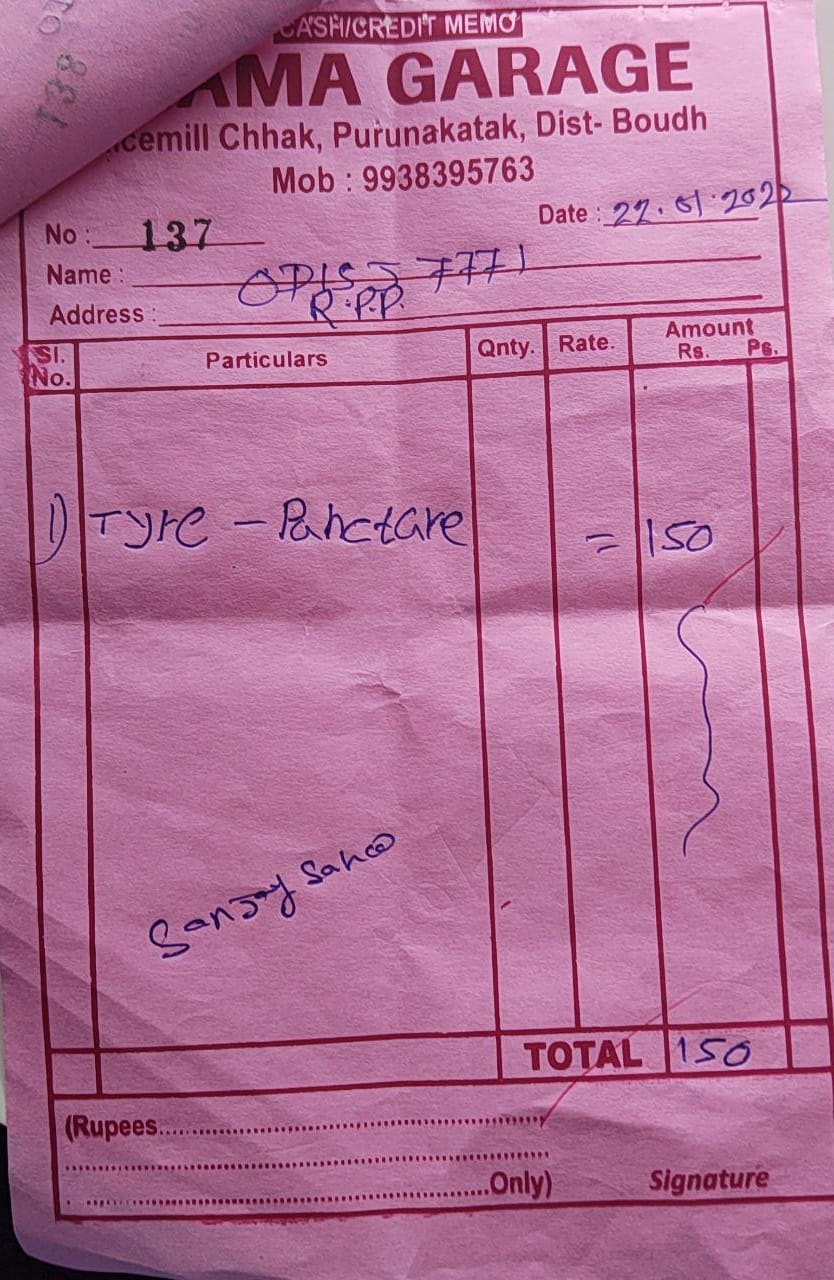 CASH/CREDIT MEMO
AMA GARAGE
cemill Chhak, Purunakatak, Dist- Boudh
Mob : 9938395763
No : 137
Date : 22.01.2022
Name : OD15 J 7771
R.P.P.
Address :
Sl. No. Particulars Qnty. Rate. Amount Rs. Ps.
1) Tyre - Panctare = 150
Sanjay Sahoo
TOTAL 150
(Rupees
Only)
Signature
138